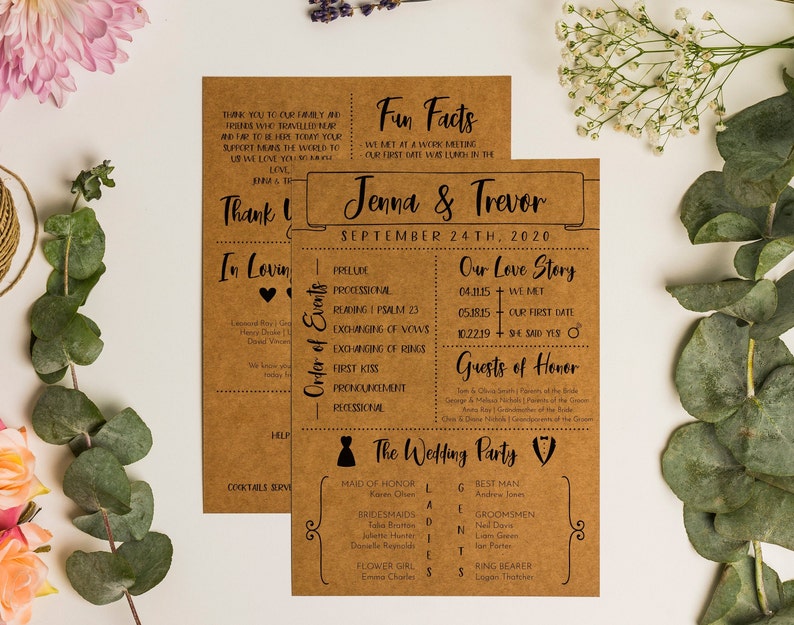 THANK YOU TO OUR FAMILY AND
FRIENDS WHO TRAVELLED NEAR
AND FAR TO BE HERE TODAY! YOUR
SUPPORT MEANS THE WORLD TO
US! WE LOVE YOU SO MUCH.
LOVE,
JENNA & TR
Thank
In Loving
Leonard Ray | Gra
Henry Drake | U
David Vincen
We know you
today fr
HELP
COCKTAILS SERVE
Fun Facts
- WE MET AT A WORK MEETING
OUR FIRST DATE WAS LUNCH IN THE
Jenna & Trevor
SEPTEMBER 24TH, 2020
Order of Events
PRELUDE
PROCESSIONAL
READING | PSALM 23
EXCHANGING OF VOWS
EXCHANGING OF RINGS
FIRST KISS
PRONOUNCEMENT
RECESSIONAL
Our Love Story
04.11.15 WE MET
05.18.15 OUR FIRST DATE
10.22.19 SHE SAID YES!
Guests of Honor
Tom & Olivia Smith | Parents of the Bride
George & Melissa Nichols | Parents of the Groom
Anita Ray | Grandmother of the Bride
Chris & Diane Nichols | Grandparents of the Groom
The Wedding Party
LADIES
MAID OF HONOR
Karen Olsen
BRIDESMAIDS
Talia Bratton
Juliette Hunter
Danielle Reynolds
FLOWER GIRL
Emma Charles
GENTS
BEST MAN
Andrew Jones
GROOMSMEN
Neil Davis
Liam Green
Ian Porter
RING BEARER
Logan Thatcher